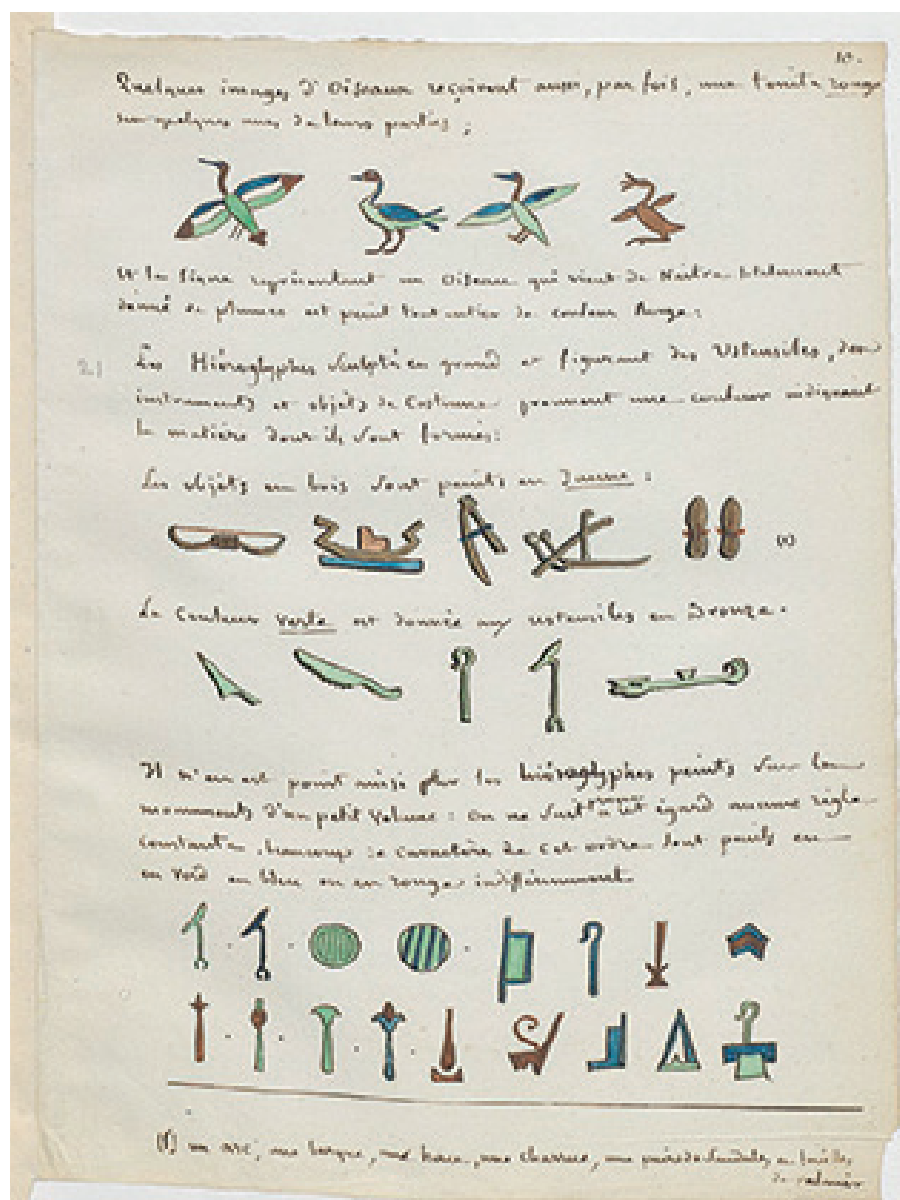 10.
Quelques images d'Oiseaux reçoivent aussi, par fois, une teinte rouge
sur quelques unes de leurs parties;
Et le signe représentant un Oiseau qui vient de Naître totalement
dénué de plumes est peint tout entier de couleur Rouge:
2.) Les Hiéroglyphes sculptés en grand et figurant des Ustensiles, des
instruments et objets de Costume prennent une couleur indiquant
la matière dont ils sont formés:
Les objets en bois sont peints en Jaune:
(1)
La Couleur verte est donnée aux ustensiles en Bronze.
Il n'en est point ainsi pour les hiéroglyphes peints sur les
monuments d'un petit volume: on ne suit à cet égard aucune règle
constante, beaucoup de caractères de cet ordre sont peints en
en verd en bleu ou en rouge indifféremment
(1) un arc, une barque, une houe, une charrue, une paire de sandales en feuilles
de palmier